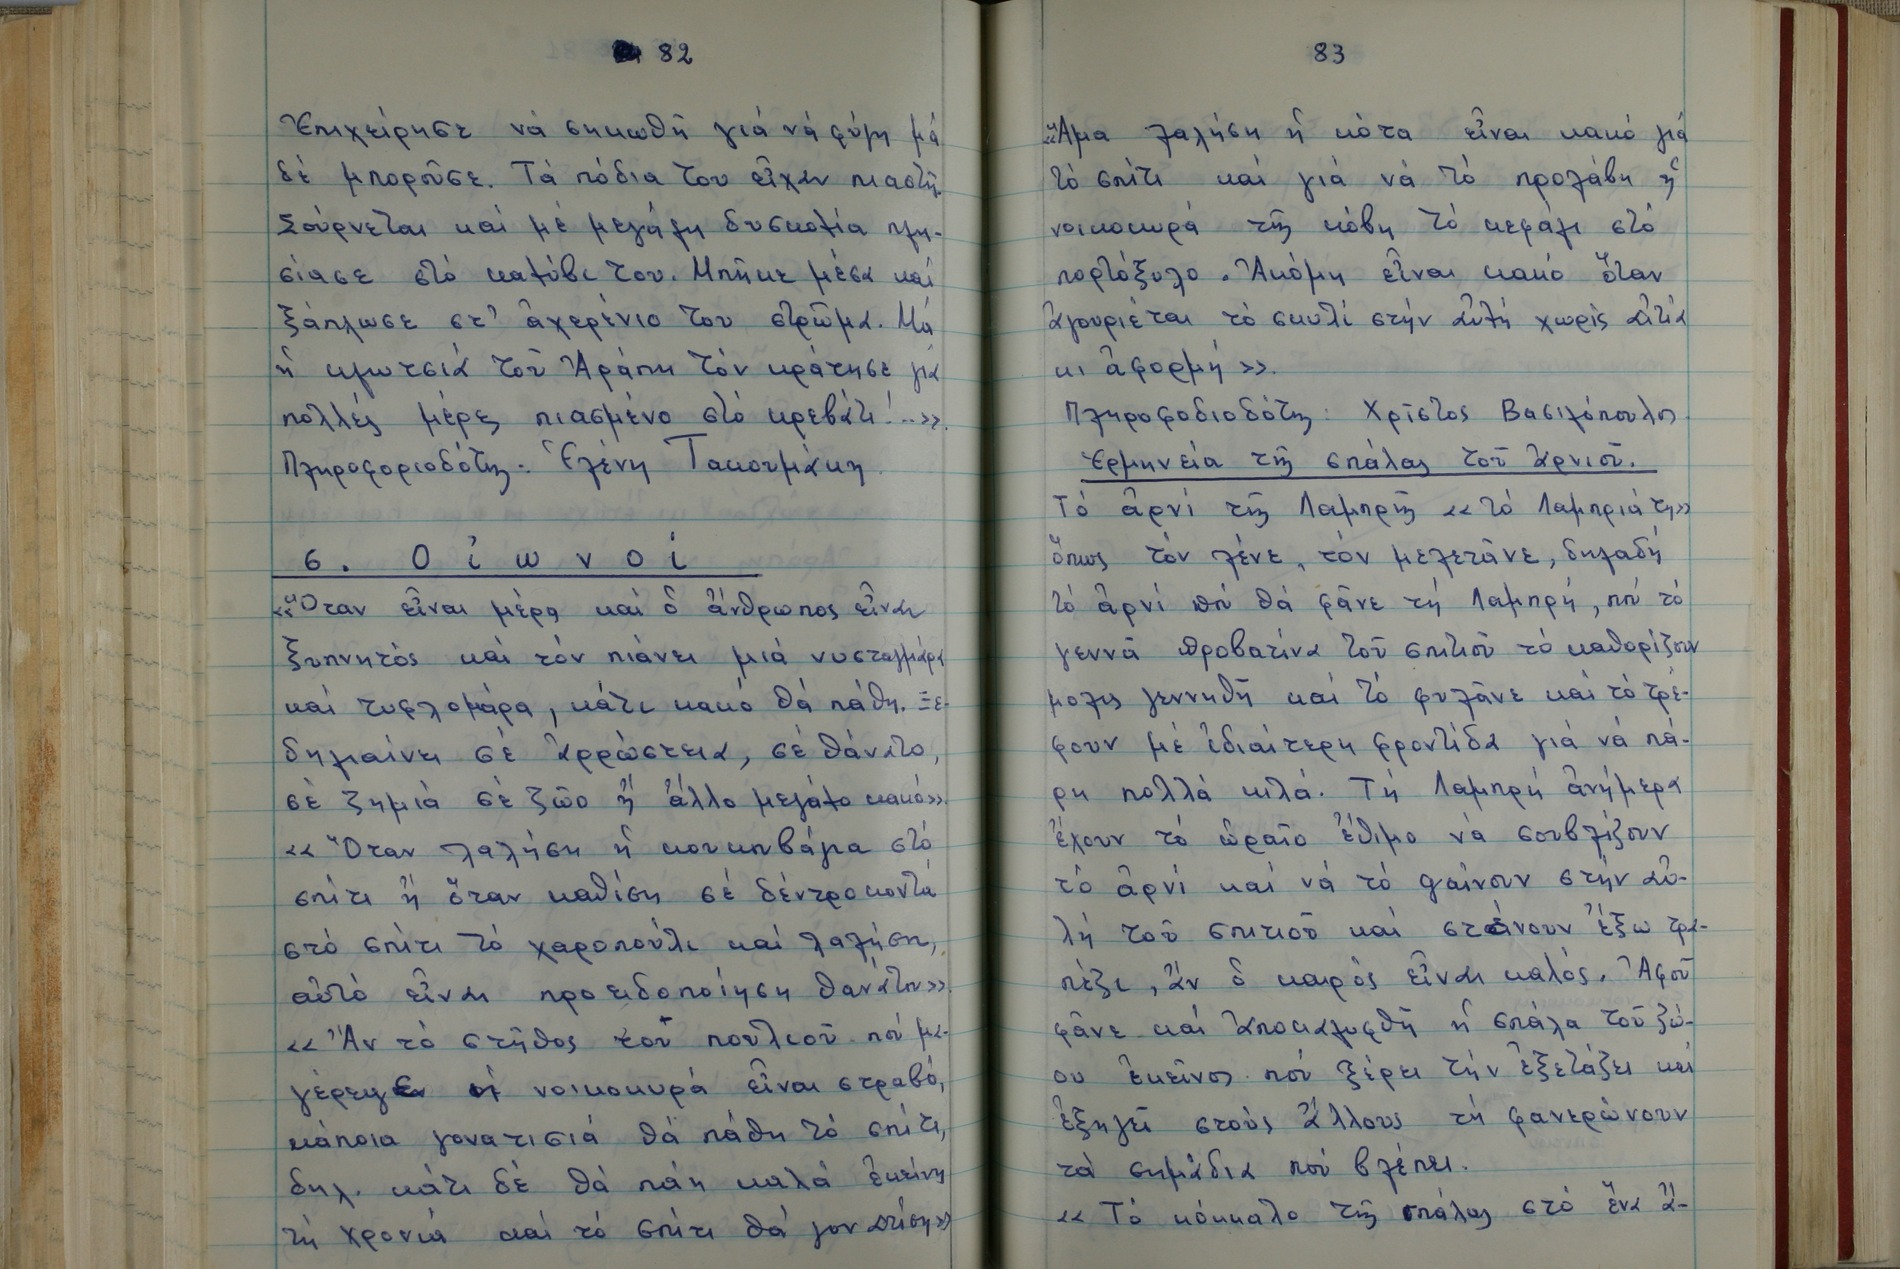 82
Ἐπιχείρησε νά σηκωθῆ γιά νά φύγη μά
δέ μποροῦσε. Τά πόδια του εἶχαν πιαστῆ.
Σούρνεται καί μέ μεγάλη δυσκολία πλη-
σίασε στό καλύβι του. Μπῆκε μέσα καί
ξάπλωσε στ' ἀχερένιο του στρῶμα. Μά
ἡ κλωτσιά τοῦ Ἀράπη τόν κράτησε γιά
πολλές μέρες πιασμένο στό κρεβάτι!..».
Πληροφοριοδότης. Ἑλένη Τακουμάκη.
6. Οἰωνοί
«Ὅταν εἶναι μέρα καί ὁ ἄνθρωπος εἶναι
ξυπνητός καί τόν πιάνει μιά νυσταγμάρα
καί τυφλομάρα, κάτι κακό θά πάθη. Ξε-
δηλιαίνει σέ ἀρρώστεια, σέ θάνατο,
σέ ζημιά σέ ζῶο ἤ ἄλλο μεγάλο κακό».
«Ὅταν λαλήση ἡ κουκουβάγια στό
σπίτι ἤ ὅταν καθίση σέ δέντρο κοντά
στό σπίτι τό χαροπούλι καί λαλήση,
αὐτό εἶναι προειδοποίηση θανάτου».
«Ἄν τό στῆθος τοῦ πουλιοῦ πού μα-
γέρεψε ἡ νοικοκυρά εἶναι στραβό,
κάποια γονατισιά θά πάθη τό σπίτι,
δηλ. κάτι δέ θά πάη καλά ἐκείνη
τή χρονιά καί τό σπίτι θά γονατίση»
83
«Ἅμα λαλήση ἡ κότα εἶναι κακό γιά
τό σπίτι καί γιά νά τό προλάβη ἡ
νοικοκυρά τῆς κόβη τό κεφάλι στό
πορτόξυλο. Ἀκόμη εἶναι κακό ὅταν
ἀγουριέται τό σκυλί στήν αὐλή χωρίς αἰτία
κι ἀφορμή».
Πληροφοδιοδότης: Χρῖστος Βασιλόπουλος
Ἑρμηνεία τῆς σπάλας τοῦ ἀρνιοῦ.
Τό ἀρνί τῆς Λαμπρῆς «τό Λαμπριάτη»
ὅπως τόν λένε, τόν μελετᾶνε, δηλαδή
τό ἀρνί πού θά φᾶνε τή Λαμπρή, πού τό
γεννᾶ προβατίνα τοῦ σπιτιοῦ τό καθορίζουν
μόλις γεννηθῆ καί τό φυλᾶνε καί τό τρέ-
φουν μέ ἰδιαίτερη φροντίδα γιά νά πά-
ρη πολλά κιλά. Τή Λαμπρή ἀνήμερα
ἔχουν τό ὡραῖο ἔθιμο νά σουβλίζουν
τό ἀρνί καί νά τό ψαίνουν στήν αὐ-
λή τοῦ σπιτιοῦ καί στένουν ἔξω τρα-
πέζι, ἄν ὁ καιρός εἶναι καλός. Ἀφοῦ
φᾶνε καί ἀποκαλυφθῆ ἡ σπάλα τοῦ ζώ-
ου ἐκεῖνος πού ξέρει τήν ἐξετάζει καί
ἐξηγεῖ στούς ἄλλους τή φανερώνουν
τά σημάδια πού βλέπει.
«Τό κόκκαλο τῆς σπάλας στό ἕνα ἄ-